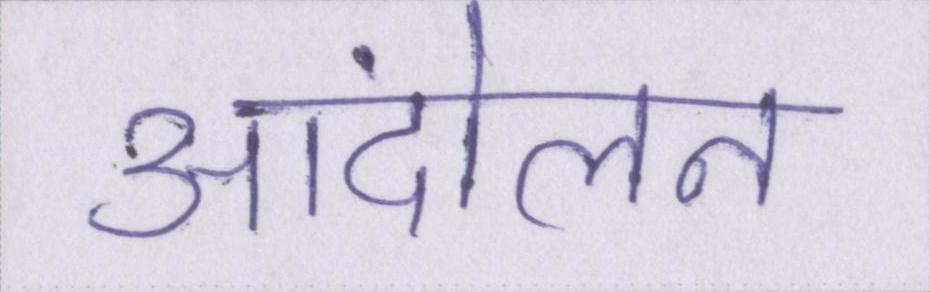 आंदोलन